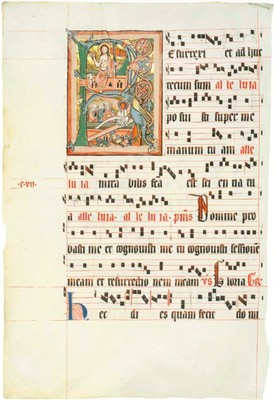 Esurrexi et ad huc
tecum sum al le luia
po sui sti super me
manum tu am alle
luia mira bilis facta est sci en tia tu
a alle luia. al le luia. ps Domine pro
basti me et cognovisti me tu cognovisti sessionē
meam et resurrectio nem meam vs Gloria
c·vii·
Hec di es quam fecit do mi